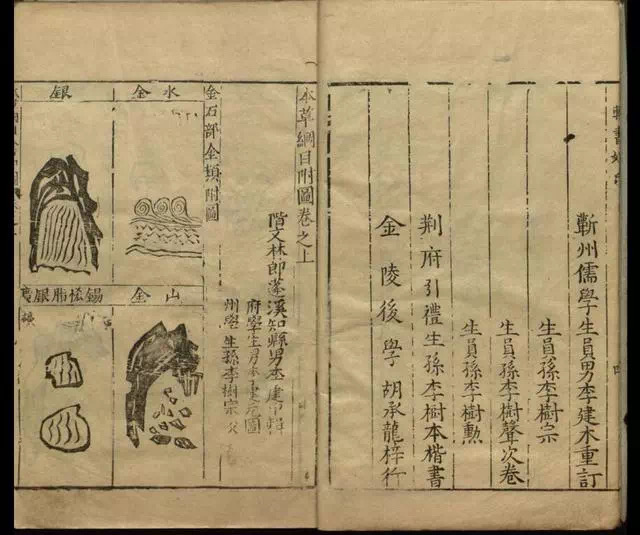 輯書姓氏
蘄州儒學生員男李建木重訂
生員孫李樹宗
生員孫李樹聲次卷
生員孫李樹勳
荆府引禮生孫李樹本楷書
金陵後學胡承龍梓行
本草綱目附圖卷之上
階文林郎蓬溪知縣男李建中輯
府學生男李建元圖
州學生孫李樹宗
金石部金類附圖
水金
山金
銀
錫恡脂銀